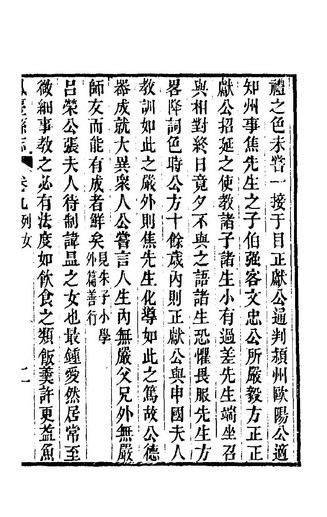 禮之色未嘗一接于目正獻公通判潁州歐陽公適
知州事焦先生之子伯强客文忠公所嚴毅方正正
獻公招延之使教諸子諸生小有過差先生端坐召
與相對終日竟夕不與之語諸生恐懼畏服先生方
畧降詞色時公方十餘歲內則正獻公與申國夫人
教訓如此之嚴外則焦先生化導如此之篤故公德
器成就大異衆人公嘗言人生內無嚴父兄外無嚴
師友而能有成者鮮矣見朱子小學
外篇善行
呂榮公張夫人待制諱昷之女也最鍾愛然居常至
微細事教之必有法度如飲食之類飯羹許更益魚
卷九列女
二